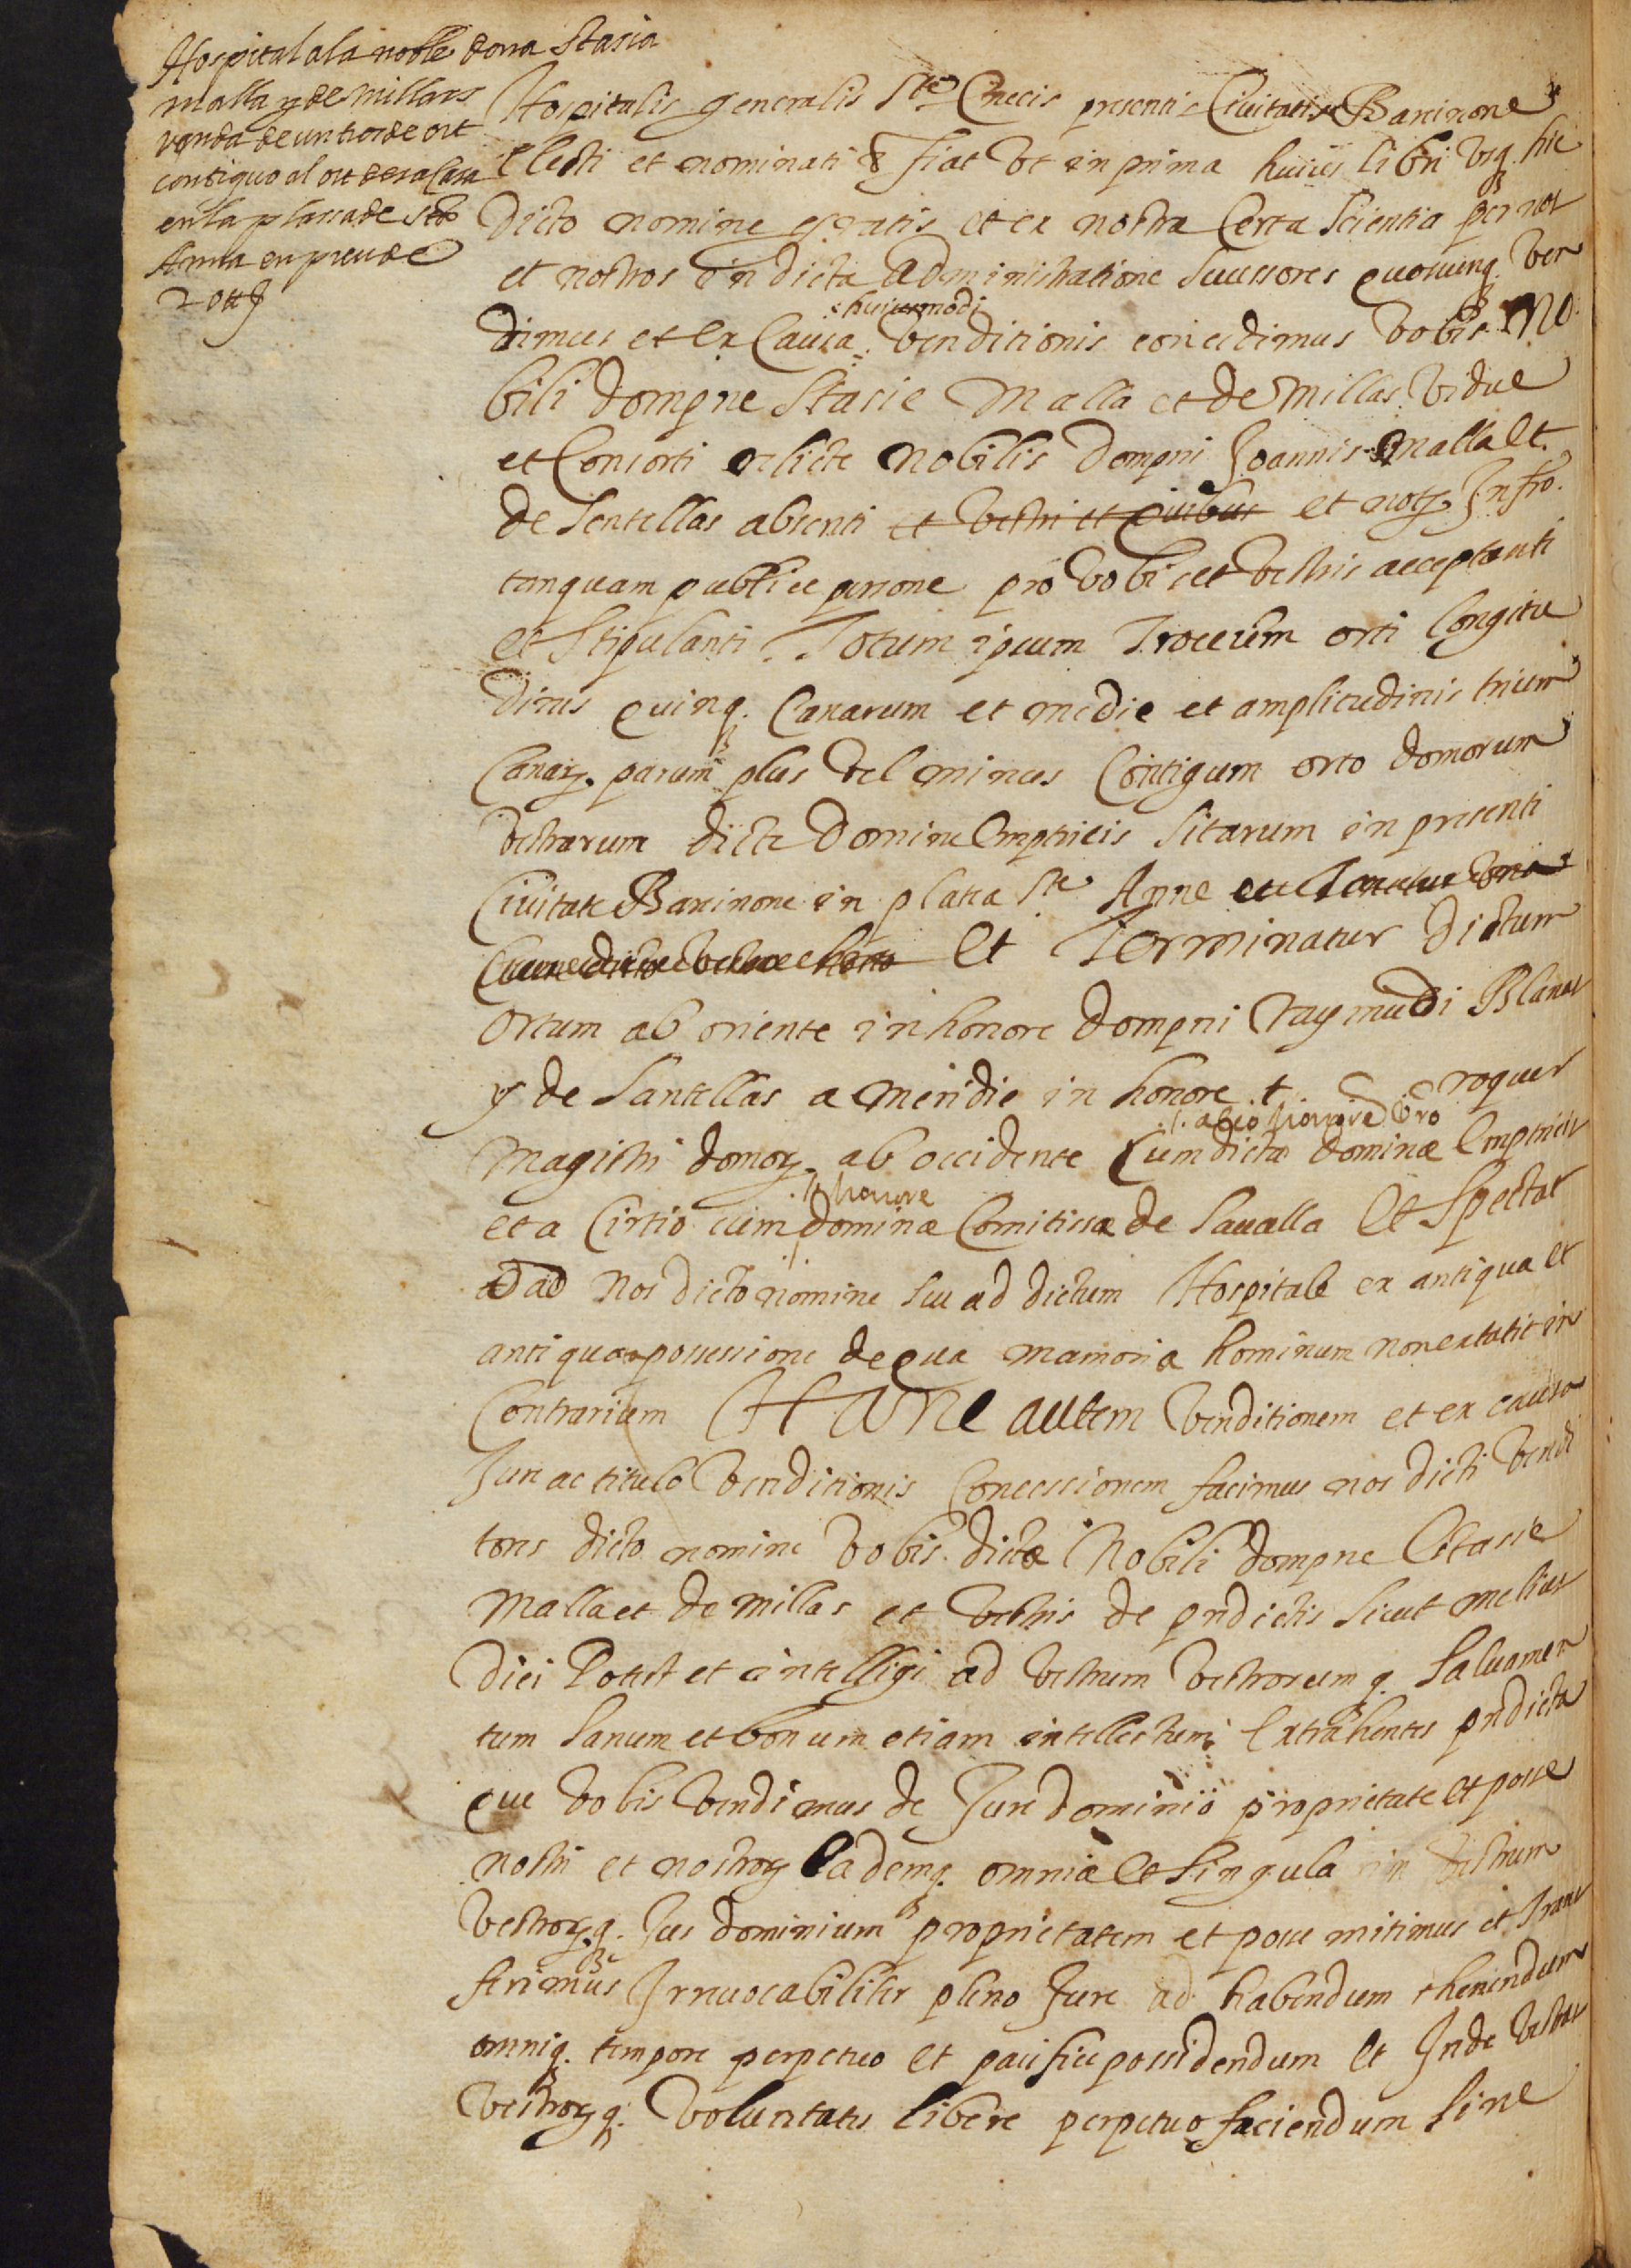 Hospital ala noble dona Stasia
Malla y de Millars
venda de un tros de ort
contiguo al ort de sa Casa
en la plassa de Sta
Anna en preu de
20 ℔
Hospitalis generalis Ste Crucis presentis Civitatis Barcinone
Electi et nominati & fiat ut in prima huius libri usq. hic
Dicto nomine gratis et ex nostra Certa Scientia per nos
et nostros in dicta Administratione Successores quoscunq. Ven
dimus et ex Causa huiusmodi venditionis concedimus vobis No
bili Dompne Stasie Malla et de Millas vidue
et Consorti relicte Nobilis Dompni Joannis Malla et
de Sentellas absenti et vestri et quibus et notz. Infro.
tanquam publice persone pro vobis et vestris acceptanti
et Stipulanti. Totum ipsum Troceum orti longitu
dinis quinq. Canarum et medie et amplitudinis trium
Canarz. parum plus vel minus Contiguum orto domorum
vestrarum dicte Domine Emptricis Sitarum in presenti
Civitate Barcinone in platea Ste Anne
Et Terminatur Dictum
Ortum ab oriente in honore Dompni Raymudi Blanes
y de Santellas a meridie in honore t. roquer
Magistri domorz. ab occidente Cum alio honore vro dictæ Dominæ Emptricis
et a Cirtio cum honore dominæ Comitissæ de Savalla Et Spectat
ad Nos dicto nomine seu ad dictum Hospitale ex antiqua et
antiqua possessione de qua Mamoria hominum non extatit in
Contrarium Hanc autem venditionem et ex causa
Jure ac titulo venditionis Concessionem facimus nos dicti vendi
tores dicto nomine vobis dictæ Nobili Dompne Stasie
Malla et de Millas et vestris de predictis Sicut melius
Dici Potest et intelligi ad vestrum vestrorumq. Salvamen
tum Sanum et bonum etiam intellectum Extrahentes predicta
que vobis vendimus de Jure dominio proprietate et posse
nostri et nostrorz Eademq. omnia et Singula in vestrum
vestrorzq. Jus dominium proprietatem et posse mitimus et Trans
ferimus Irrevocabiliter pleno Jure ad habendum thenendum
omniq. tempore perpetuo et pacifice possidendum Et Inde vestras
vestrorzq. Voluntates libere perpetuo faciendum Sine